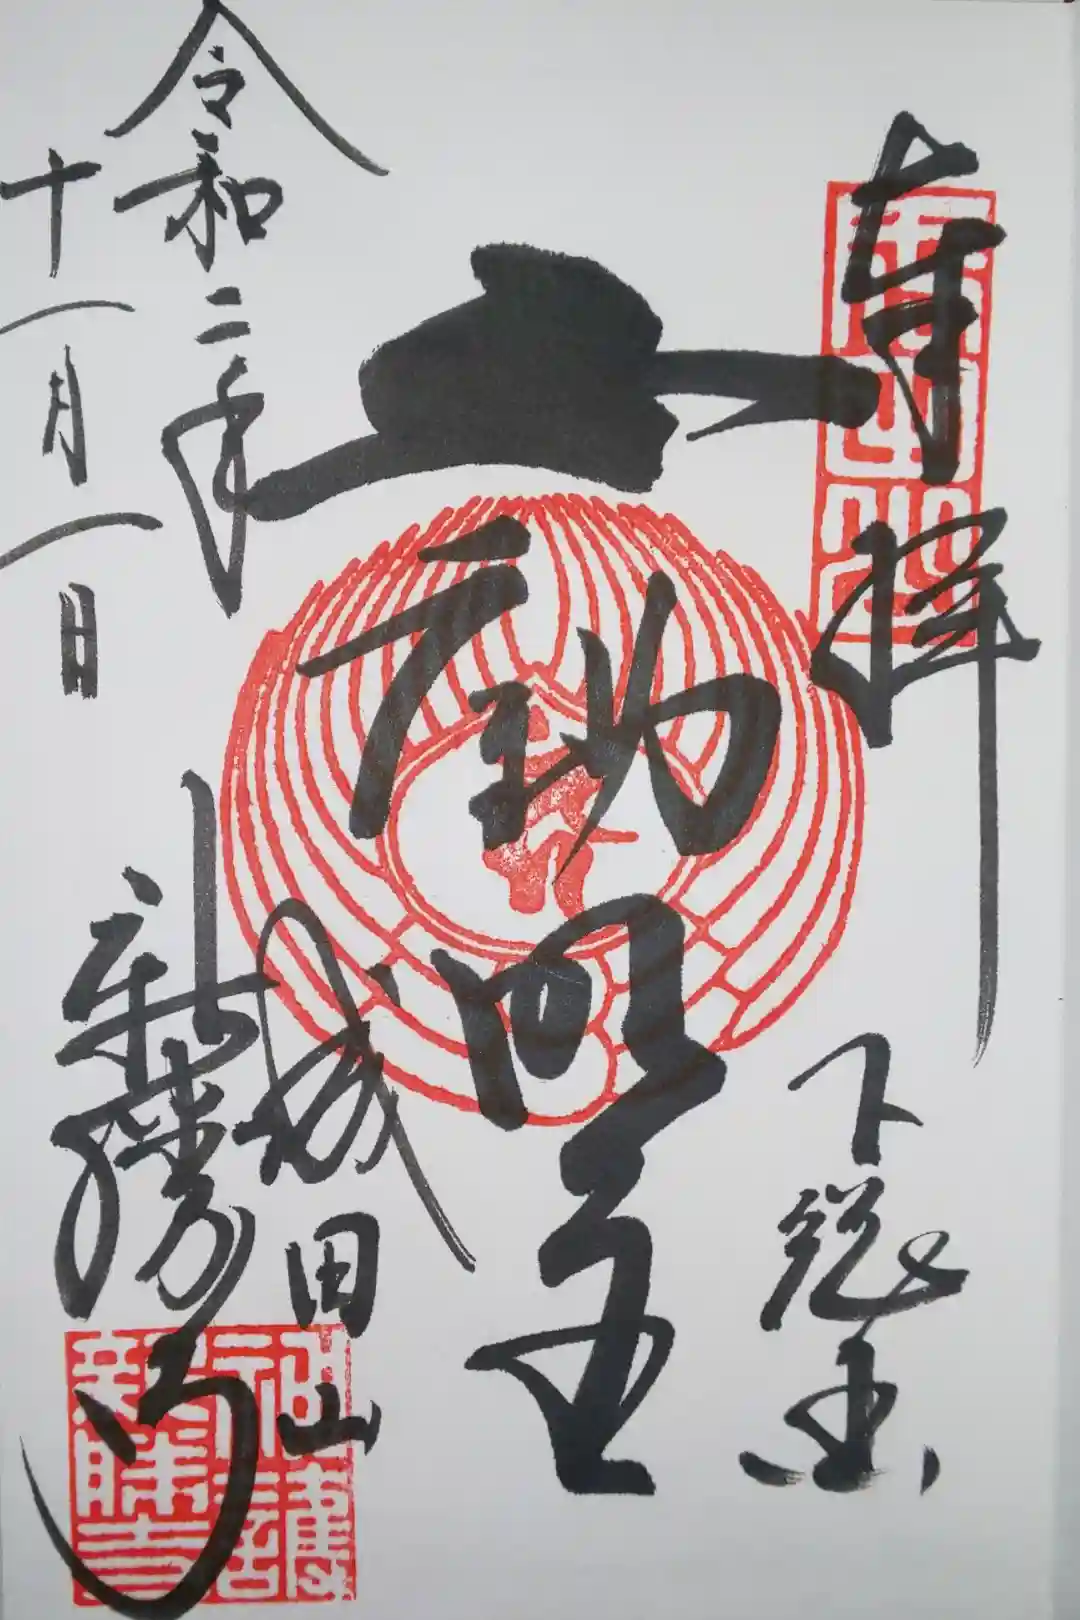 奉拝
成田山
下総国
不動明王
令和二年
十一月一日
成田山
新勝寺
神護
新勝寺